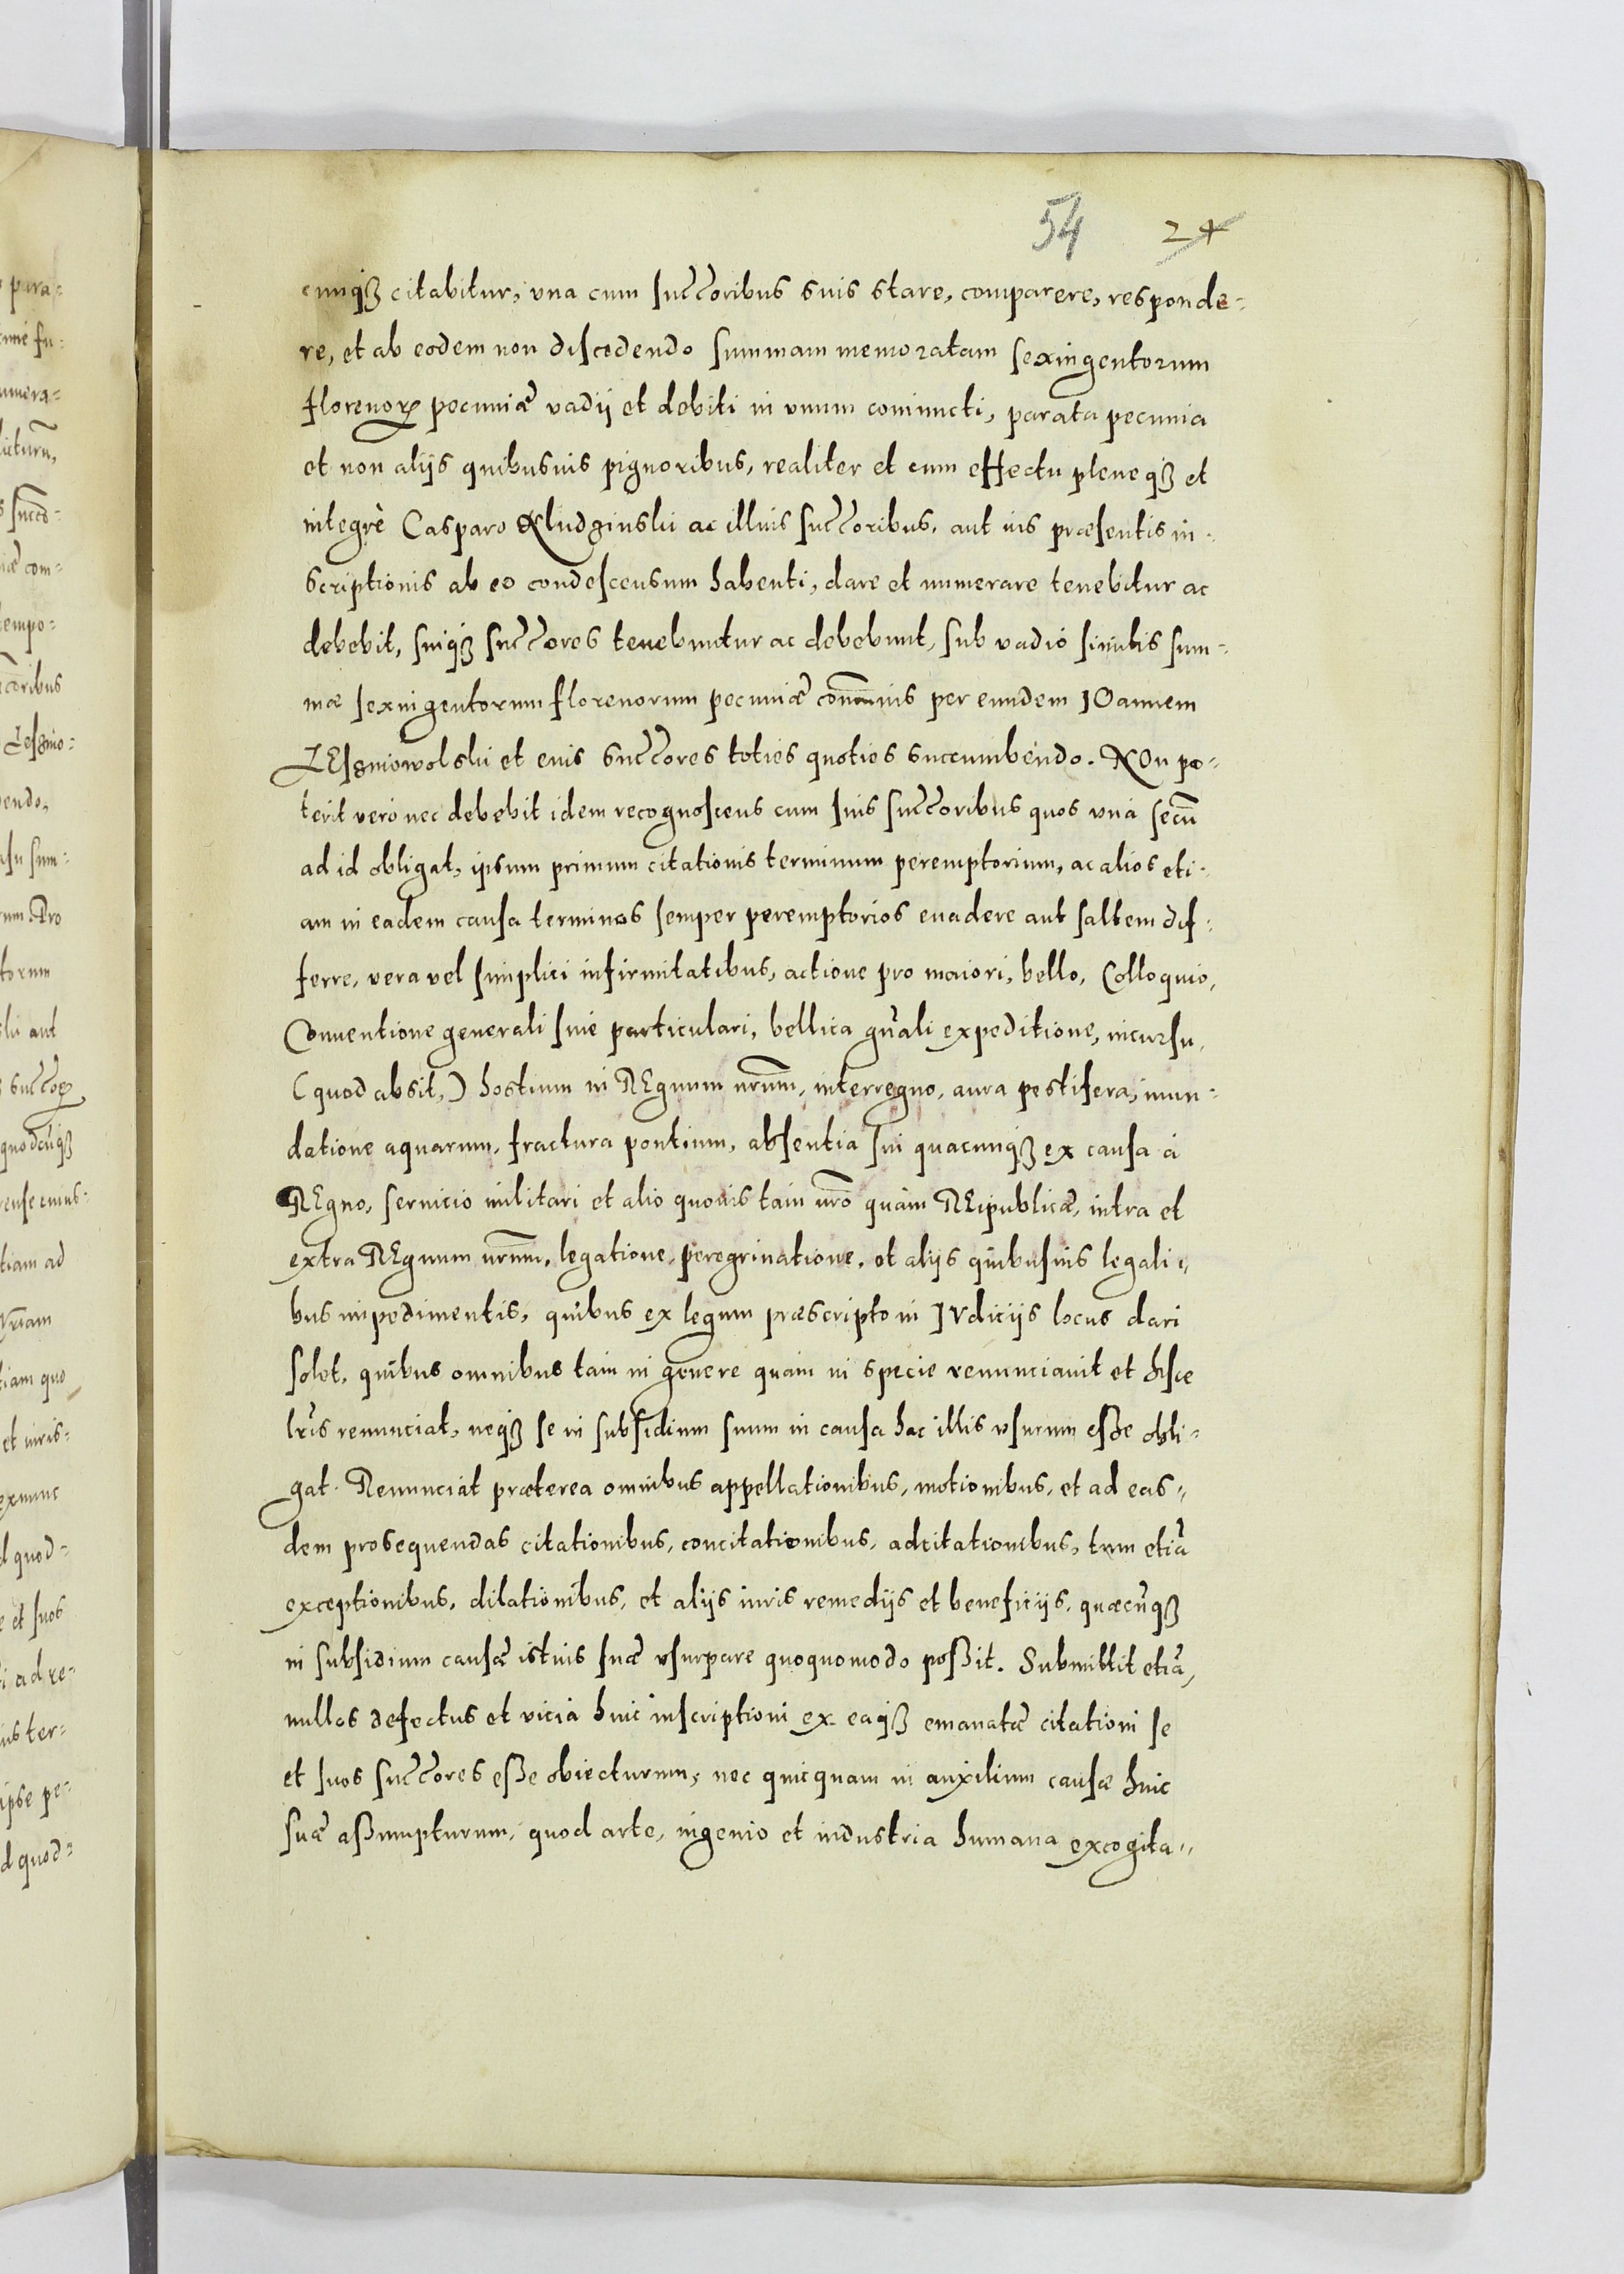 54 24
cunqꝫ citabitur, vna cum succ̃oribus suis stare, comparere, responde-
re, et ab eodem non discedendo summam memoratam sexingentorum
florenoꝝ pecuniæ vadij et debiti in vnum coniuncti, parata pecunia
et non alijs quibusuis pignoribus, realiter et cum effectu pleneqꝫ et
integrè Casparo Kludzinski ac illius succ̃oribus, aut ius præsentis in-
scriptionis ab eo condescensum habenti, dare et numerare tenebitur ac
debebit, suiqꝫ succ̃ores tenebuntur ac debebunt, sub vadio similis sum-
mæ sexingentorum florenorum pecuniæ com̃unis per eundem IOannem
LEsniowolski et eius succ̃ores toties quoties succumbendo. NOn po-
terit vero nec debebit idem recognoscens cum suis succ̃oribus quos vna secũ
ad id obligat, ipsum primum citationis terminum peremptorium, ac alios eti-
am in eadem causa terminos semper peremptorios euadere aut saltem dif-
ferre, vera vel simplici infirmitatibus, actione pro maiori, bello, Colloquio,
Conuentione generali siue particulari, bellica gñali expeditione, incursu,
(quod absit,) hostium in REgnum nr̃um, interregno, aura pestifera, inun-
datione aquarum, fractura pontium, absentia sui quacunqꝫ ex causa à
REgno, seruicio militari et alio quouis tam nr̃o quàm REipublicæ, intra et
extra REgnum nr̃um, legatione, peregrinatione, et alijs quibusuis legali-
bus impedimentis, quibus ex legum præscripto in IVdicijs locus dari
solet, quibus omnibus tam in genere quam in specie renunciauit et hisce
lr̃is renunciat, neqꝫ se in subsidium suum in causa hac illis vsurum eße obli-
gat. Renunciat præterea omnibus appellationibus, motionibus, et ad eas-
dem prosequendas citationibus, concitationibus, adcitationibus, tum etiã
exceptionibus, dilationibus, et alijs iuris remedijs et beneficijs, quæcũqꝫ
in subsidium causæ istius suæ vsurpare quoquomodo poßit. Submittit etiã,
nullos defectus et vicia huic inscriptioni ex eaqꝫ emanatæ citationi se
et suos succ̃ores eße obiecturum, nec quicquam in auxilium causæ huic
suæ aßumpturum, quod arte, ingenio et industria humana excogita-